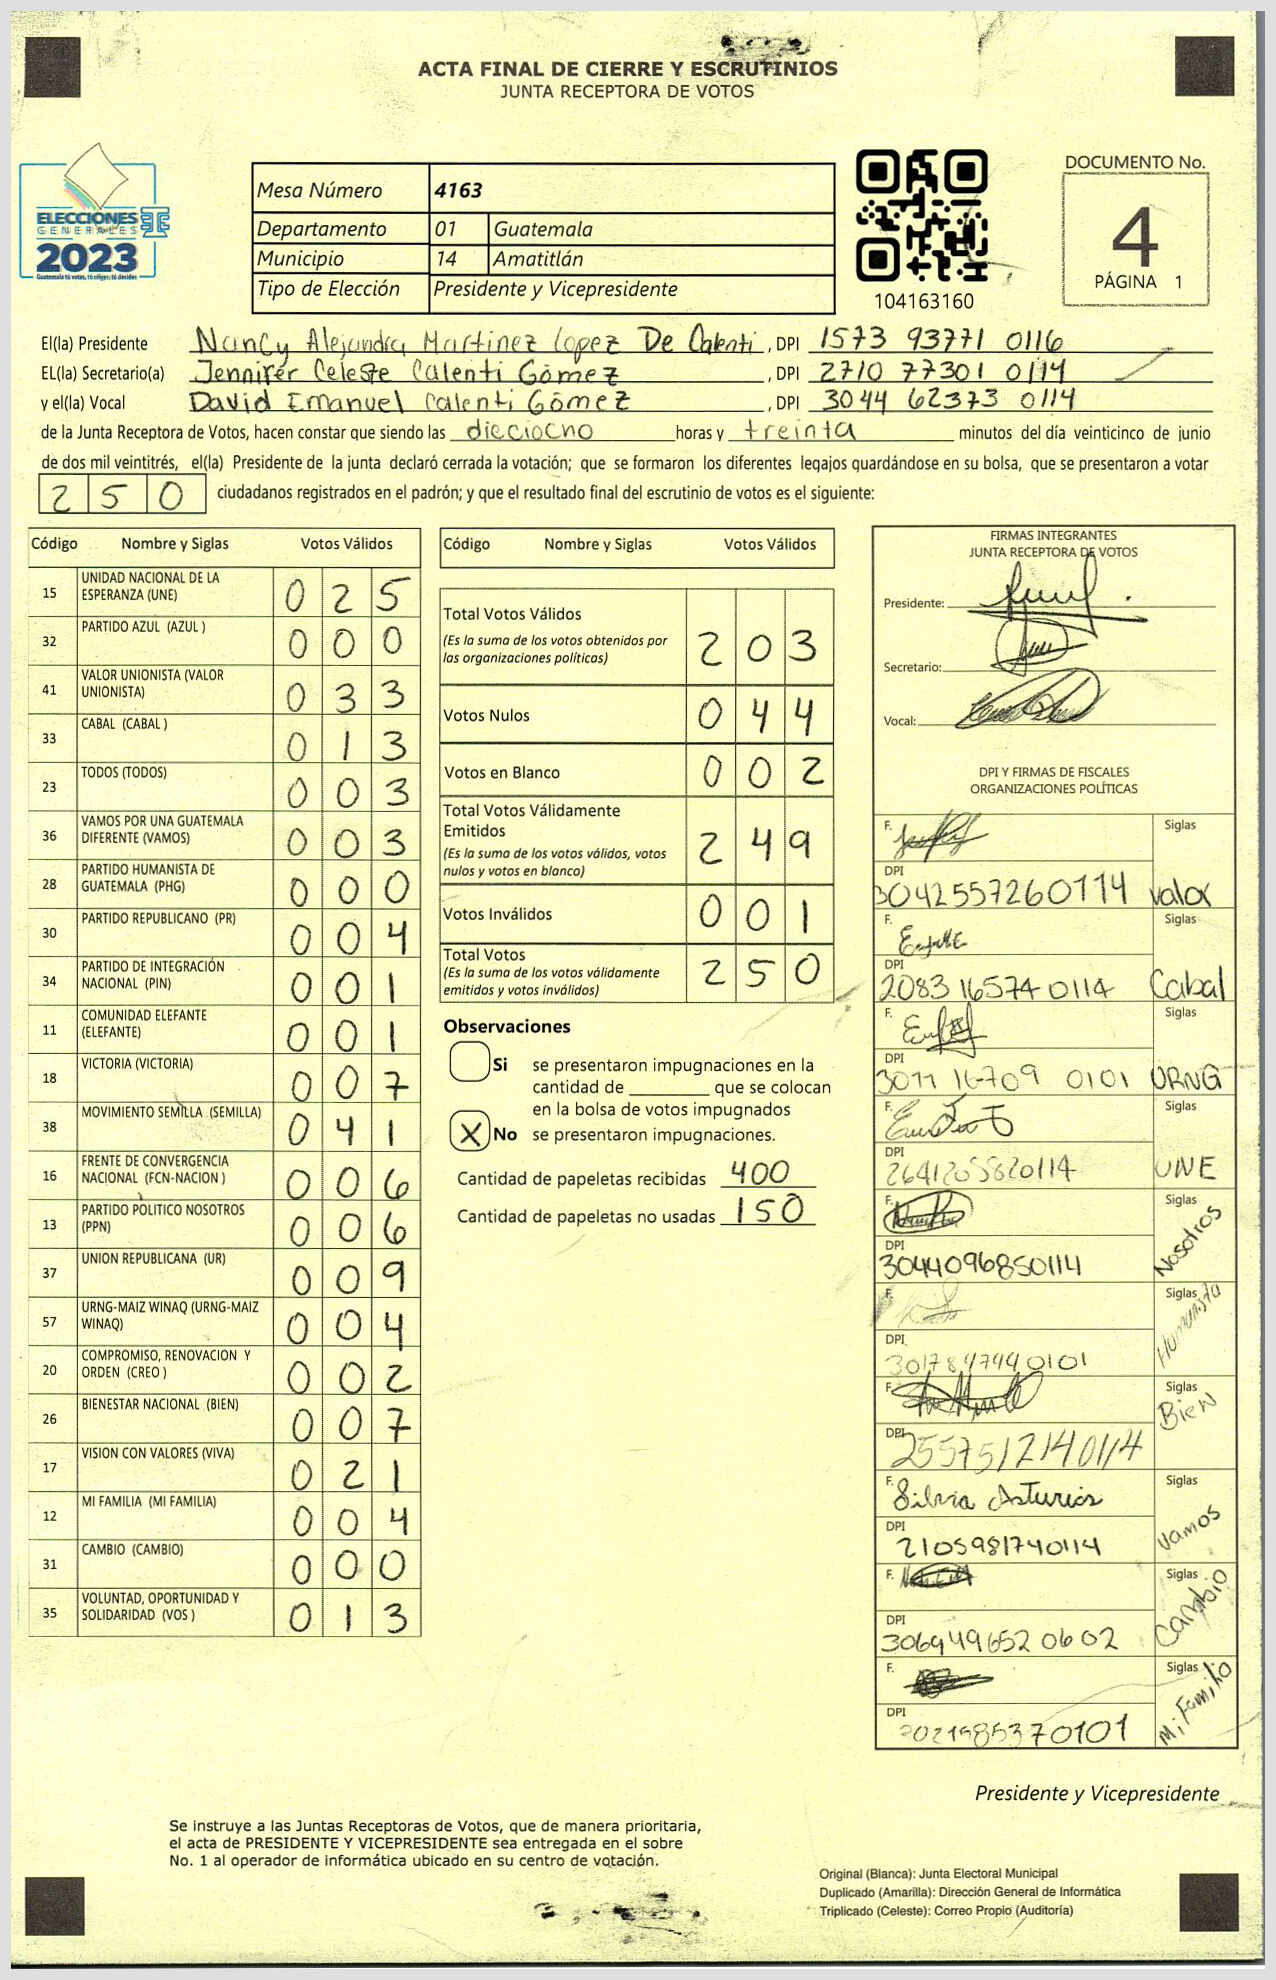 ACTA FINAL DE CIERRE Y ESCRUTINIOS
JUNTA RECEPTORA DE VOTOS
ELECCIONES
GENERALES
2023
Guatemala tú votas, tú eliges, tú decides
Mesa Número 4163
Departamento 01 Guatemala
Municipio 14 Amatitlán
Tipo de Elección Presidente y Vicepresidente
104163160
DOCUMENTO No.
4
PÁGINA 1
El(la) Presidente Nancy Alejandra Martinez Lopez De Calenti, DPI 1573 93771 0116
EL(la) Secretario(a) Jennifer Celeste Calenti Gómez, DPI 2710 77301 0114
y el(la) Vocal David Emanuel Calenti Gómez, DPI 3044 62373 0114
de la Junta Receptora de Votos, hacen constar que siendo las dieciocho horas y treinta minutos del día veinticinco de junio
de dos mil veintitrés, el(la) Presidente de la junta declaró cerrada la votación; que se formaron los diferentes legajos guardándose en su bolsa, que se presentaron a votar
250 ciudadanos registrados en el padrón; y que el resultado final del escrutinio de votos es el siguiente:
Código Nombre y Siglas Votos Válidos
15 UNIDAD NACIONAL DE LA ESPERANZA (UNE) 025
32 PARTIDO AZUL (AZUL ) 000
41 VALOR UNIONISTA (VALOR UNIONISTA) 033
33 CABAL (CABAL ) 013
23 TODOS (TODOS) 003
36 VAMOS POR UNA GUATEMALA DIFERENTE (VAMOS) 003
28 PARTIDO HUMANISTA DE GUATEMALA (PHG) 000
30 PARTIDO REPUBLICANO (PR) 004
34 PARTIDO DE INTEGRACIÓN NACIONAL (PIN) 001
11 COMUNIDAD ELEFANTE (ELEFANTE) 001
18 VICTORIA (VICTORIA) 007
38 MOVIMIENTO SEMILLA (SEMILLA) 041
16 FRENTE DE CONVERGENCIA NACIONAL (FCN-NACION ) 006
13 PARTIDO POLITICO NOSOTROS (PPN) 006
37 UNION REPUBLICANA (UR) 009
57 URNG-MAIZ WINAQ (URNG-MAIZ WINAQ) 004
20 COMPROMISO, RENOVACION Y ORDEN (CREO ) 002
26 BIENESTAR NACIONAL (BIEN) 007
17 VISION CON VALORES (VIVA) 021
12 MI FAMILIA (MI FAMILIA) 004
31 CAMBIO (CAMBIO) 000
35 VOLUNTAD, OPORTUNIDAD Y SOLIDARIDAD (VOS ) 013
Código Nombre y Siglas Votos Válidos
Total Votos Válidos
(Es la suma de los votos obtenidos por
las organizaciones políticas) 203
Votos Nulos 044
Votos en Blanco 002
Total Votos Válidamente
Emitidos
(Es la suma de los votos válidos, votos
nulos y votos en blanco) 249
Votos Inválidos 001
Total Votos
(Es la suma de los votos válidamente
emitidos y votos inválidos) 250
Observaciones
Si se presentaron impugnaciones en la
cantidad de que se colocan
en la bolsa de votos impugnados
X No se presentaron impugnaciones.
Cantidad de papeletas recibidas 400
Cantidad de papeletas no usadas 150
FIRMAS INTEGRANTES
JUNTA RECEPTORA DE VOTOS
Presidente:
Secretario:
Vocal:
DPI Y FIRMAS DE FISCALES
ORGANIZACIONES POLÍTICAS
F. Siglas
DPI
3042557260114 Valor
F. Siglas
DPI
2083 16574 0114 Cabal
F. Siglas
DPI
0101 URNG
F. Siglas
DPI
UNE
F. Siglas
DPI
3044096850114 Nosotros
F. Siglas
DPI
3017847940101 Humanista
F. Siglas
DPI
2557512140114 Bien
F. Silvia Asturias Siglas
DPI
2105981740114 Vamos
F. Siglas
DPI
3069496520602 Cambio
F. Siglas
DPI
Mi Familia
Presidente y Vicepresidente
Se instruye a las Juntas Receptoras de Votos, que de manera prioritaria,
el acta de PRESIDENTE Y VICEPRESIDENTE sea entregada en el sobre
No. 1 al operador de informática ubicado en su centro de votación.
Original (Blanca): Junta Electoral Municipal
Duplicado (Amarilla): Dirección General de Informática
Triplicado (Celeste): Correo Propio (Auditoría)